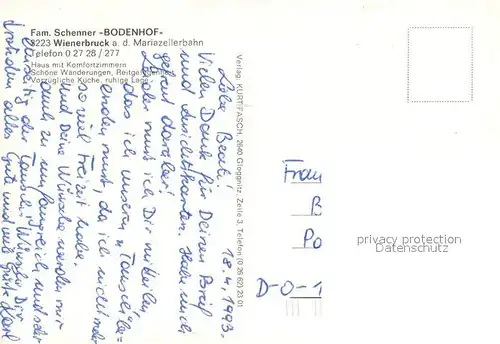 Fam. Schenner -BODENHOF-
3223 Wienerbruck a. d. Mariazellerbahn
Telefon 0 27 28 / 277
Haus mit Komfortzimmern
Schöne Wanderungen, Reitgelegenheit
Vorzügliche Küche, ruhige Lage
Verlag KURT FASCH, 2640 Gloggnitz, Zeile 3, Telefon (0 26 62) 23 01
18.4.1993.
Liebe
Vielen Dank für Deinen Brief
und Ansichtskarten. Habe mich
gefreut darüber!
Leider muß ich Dir mitteilen
das ich unseren "Tausch" be=
enden muß, da ich nicht mehr
so viel Freizeit habe.
Und Deine Wünsche werden mir
auch zu umfangreich und sehr
einseitig der Tausch! Wünsche Dir
trotzdem alles Gute und viel
Frau
B
Po
D-O-1
privacy protection
AnsichtskartenHandel.de